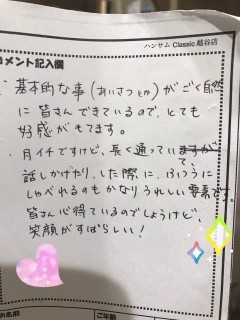 ハンサム Classic 越谷店
コメント記入欄
・基本的な事(あいさつとか)がごく自然
に皆さんできているので、とても
好感がもてます。
・月イチですけど、長く通っていますが
て、
話しかけたり、した際に、ふつうに
しゃべれるのもかなりうれしい要素です。
皆さん心得ているのでしょうけど、
笑顔がすばらしい!
お名前
ご年齢